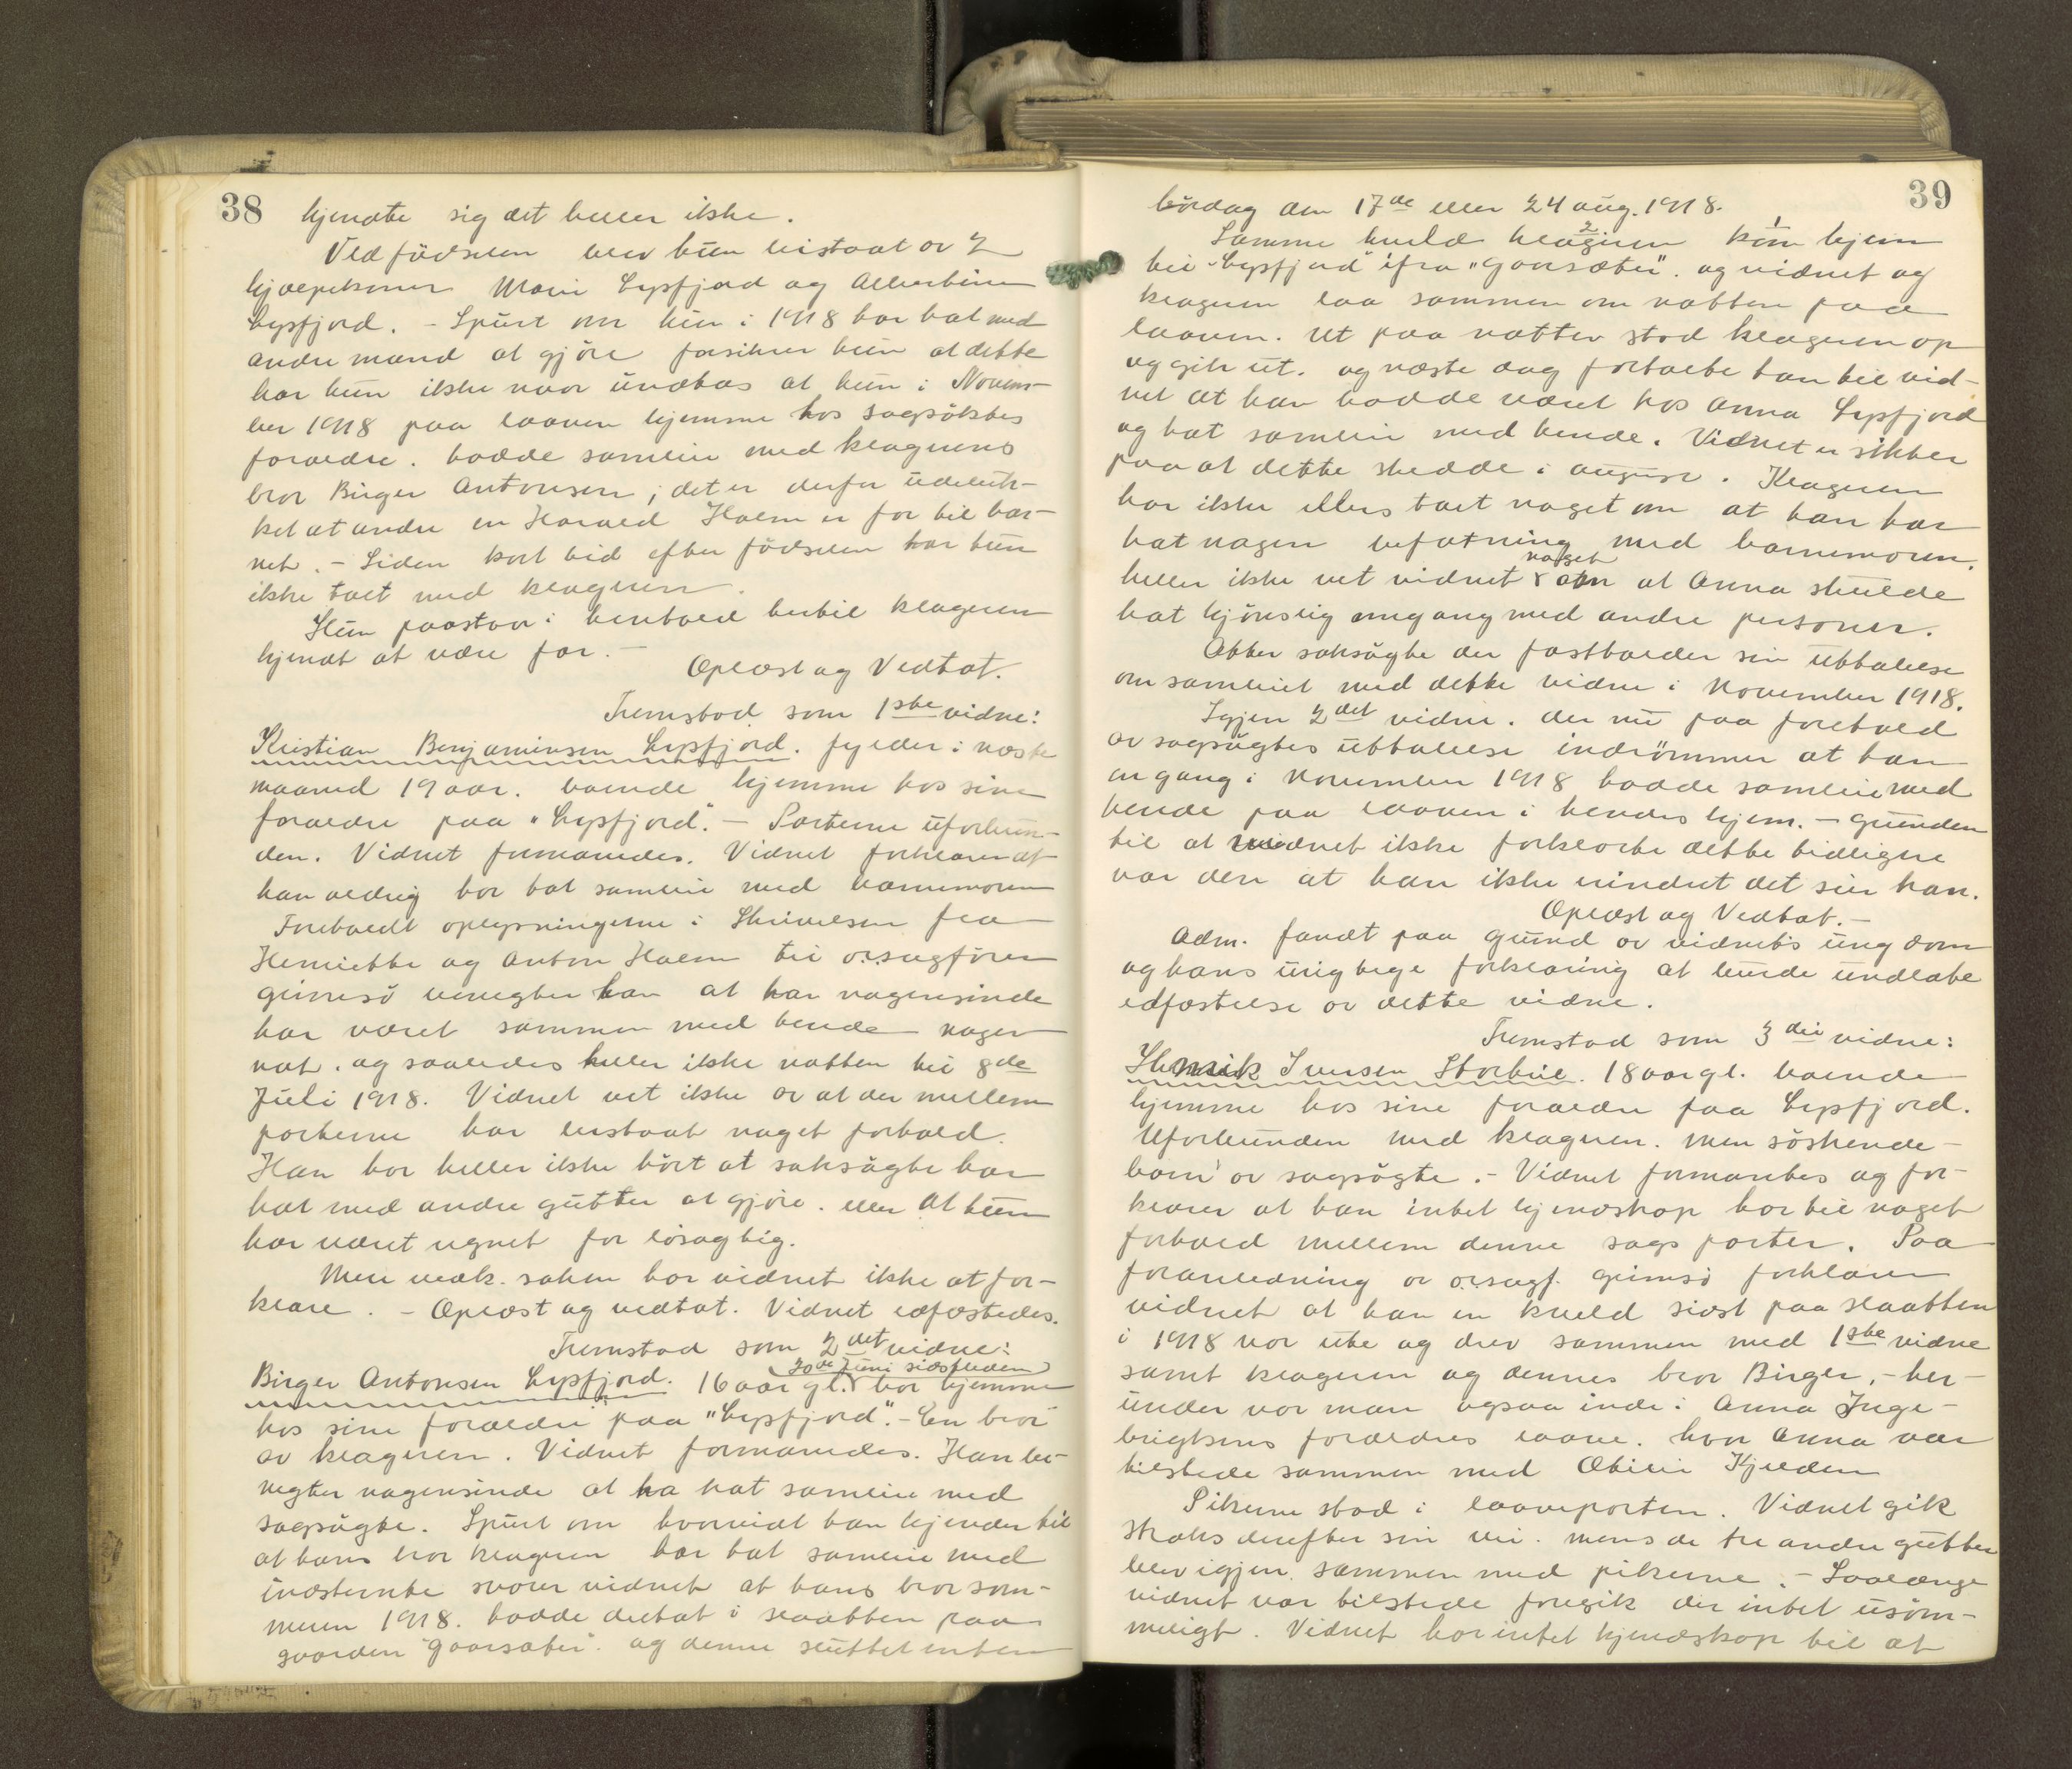 38
kjendte sig det heller ikke.
Ved fødselen blev hun bistaat av 2
hjælpekoner Marie Lysfjord og Albertine
Lysfjord. - Spurt om hun i 1918 har hat med
andre mænd at gjøre forsikrer hun at dette
har hun ikke naar undtas at hun i Novem-
ber 1918 paa laaven hjemme hos sagsøktes
forældre. hadde samleie med klagerens
bror Birger Antonsen; det er derfor udeluk-
ket at andre en Harald Holm er far til bar-
net. - Siden kort tid efter fødselen har hun
ikke talt med klageren.
Hun paastaar i henhold hertil klageren
kjendt at være far. -
Oplæst og Vedtat.
Fremstod som 1ste vidne:
Kristian Benjaminsen Lysfjord. fylder i næste
maaned 19 aar. boende hjemme hos sine
forældre paa "Lysfjord". - Parterne uforbun-
den. Vidnet formanedes. Vidnet forklarer at
han aldrig har hat samleie med barnemoren
Foreholdt oplysningerne i Skrivelsen fra
Henriette og Anton Holm til o.r.sagfører
Grimsø benegter han at han nogensinde
har været sammen med hende nogen
nat. og saaledes heller ikke natten til 8de
Juli 1918. Vidnet vet ikke av at der mellem
parterne har bestaat noget forhold.
Han har heller ikke hørt at saksøgte har
hat med andre gutter at gjøre. eller at hun
har været regnet for løsagtig.
Mere vedk. saken har vidnet ikke at for-
klare. - Oplæst og vedtat. Vidnet edfæstedes.
Fremstod som 2det vidne:
20de Juni sidstleden
Birger Antonsen Lysfjord. 16 aar gl. bor hjemme
hos sine forældre paa "Lysfjord". - En bror
av klageren. Vidnet formanedes. Han be-
negter nogensinde at ha hat samleie med
sagsøgte. Spurt om hvorvidt han kjender til
at hans bror klageren har hat samleie med
indstevnte svarer vidnet at hans bror som-
meren 1918. hadde deltat i slaatten paa
gaarden "Gaarsæter". og denne sluttet enten
39
lørdag den 17de eller 24 aug. 1918.
Samme kveld klageren kom hjem
til "Lysfjord" ifra "Gaarsæter". og vidnet og
klageren laa sammen om natten paa
laaven. Ut paa natten stod klageren op
og gik ut. og næste dag fortalte han til vid-
net at han hadde været hos Anna Lysfjord
og hat samleie med hende. Vidnet er sikker
paa at dette skedde i august. Klageren
har ikke ellers talt noget om at han har
hat nogen befatning med barnemoren.
heller ikke vet vidnet noget om at Anna skulde
hat kjønslig omgang med andre personer.
Atter saksøgte der fastholder sin uttalelse
om samleiet med dette vidne i November 1918.
Igjen 2det vidne. der nu paa forehold
av sagsøgtes uttalelse indrømmer at han
en gang i November 1918 hadde samleie med
hende paa laaven i hendes hjem. - Grunden
til at vidnet ikke forklarte dette tidligere
var den at han ikke erindret det sier han.
Oplæst og Vedtat. -
Adm. fandt paa grund av vidnets ungdom
og hans urigtige forklaring at burde undlate
edfæstelse av dette vidne.
Fremstod som 3die vidne:
Henrik Iversen Storbue. 18 aar gl. boende
hjemme hos sine forældre paa Lysfjord.
Uforbunden med klageren. men søskende-
barn av sagsøgte. - Vidnet formantes og for-
klarer at han intet kjendskap har til noget
forhold mellem denne sags parter. Paa
foranledning av o.r.sagf. Grimsø forklarer
vidnet at han en kveld sidst paa slaatten
i 1918 var ute og drev sammen med 1ste vidne
samt klageren og dennes bror Birger, - her-
under var man ogsaa inde i Anna Inge-
brigtsens forældres laave. hvor Anna var
tilstede sammen med Otilie Kjelden
Pikerne stod i laaveporten. Vidnet gik
straks derefter sin vei. mens de tre andre gutter
blev igjen sammen med pikerne. - Saalænge
vidnet var tilstede foregik der intet usøm-
meligt. Vidnet har intet kjendskap til at